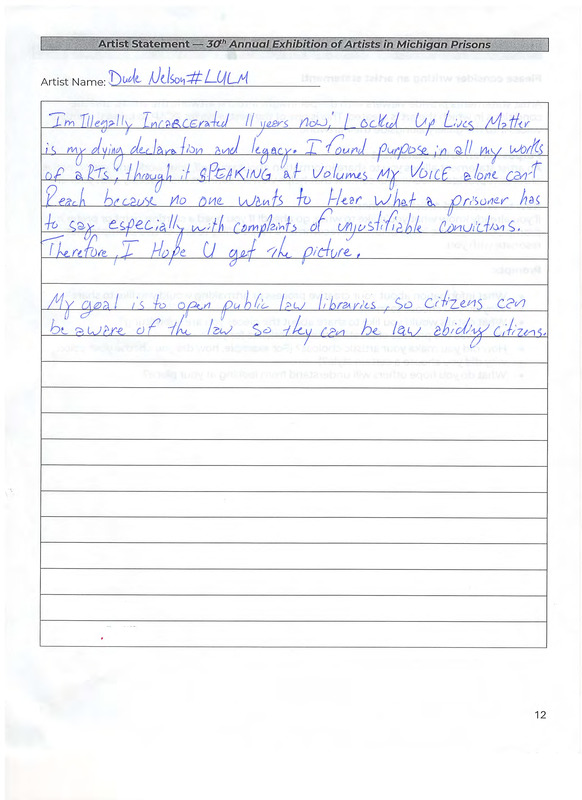 Artist Statement — 30th Annual Exhibition of Artists in Michigan Prisons
Artist Name: Dude Nelson #LULM
I'm Illegally Incarcerated 11 years now; Locked Up Lives Matter
is my dying declaration and legacy. I found purpose in all my works
of aRTs; through it SPEAKING at Volumes My VOICE alone can't
Reach because no one wants to Hear What a prisoner has
to say especially with complaints of unjustifiable convictions.
Therefore, I Hope U get the picture.
My goal is to open public law libraries, so citizens can
be aware of the law so they can be law abiding citizens.
12